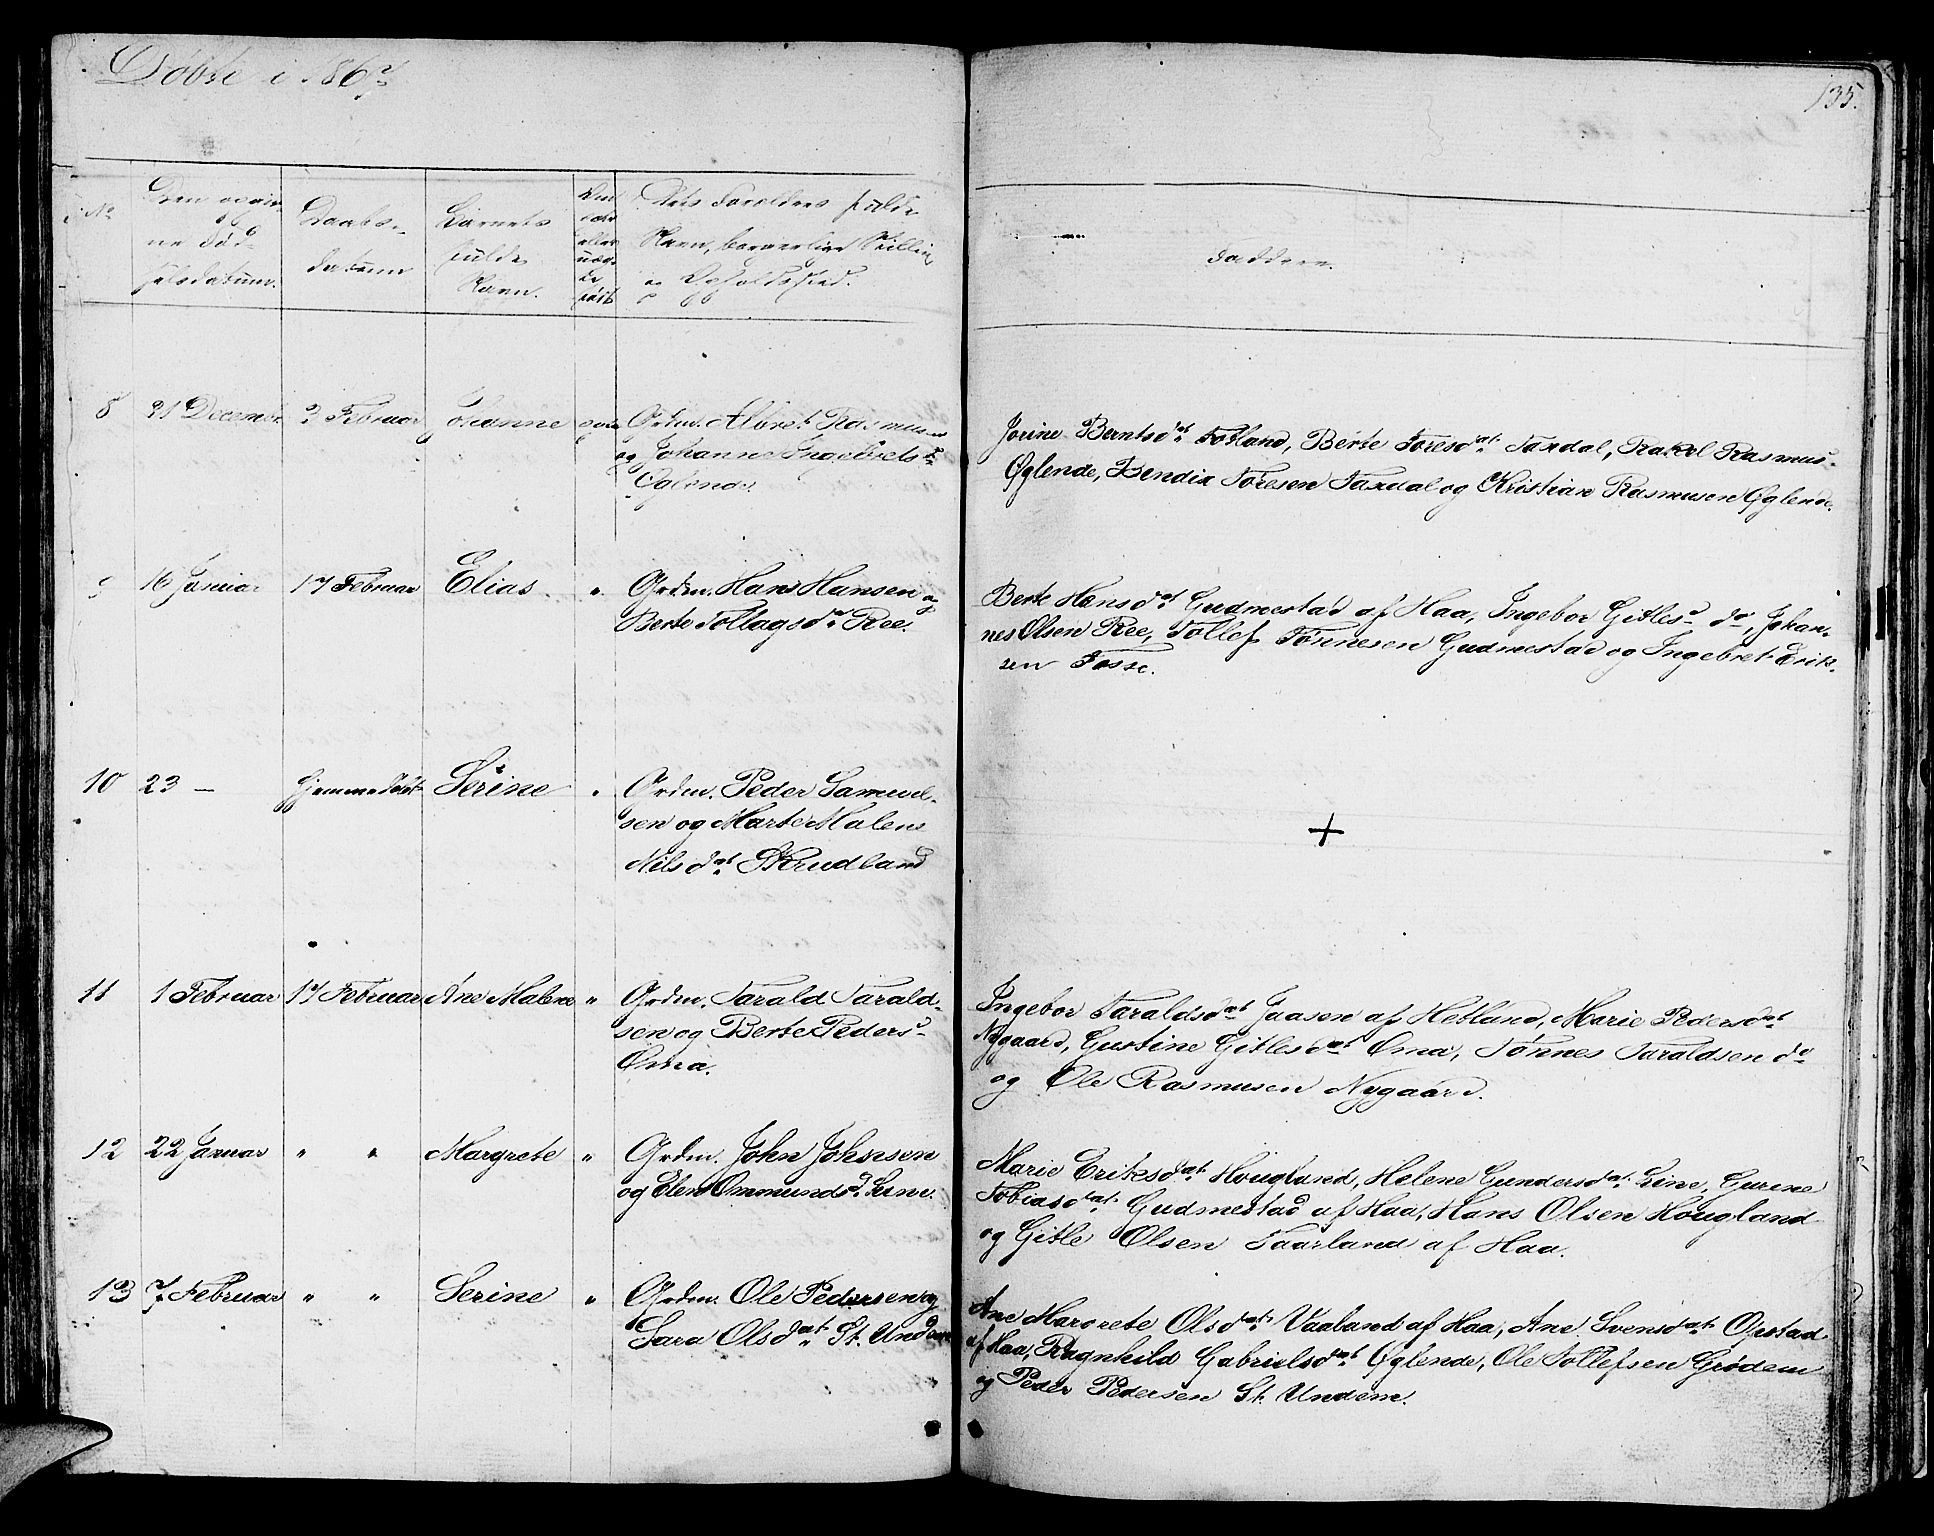 Döbte i 1867
135.
No
Den opgiv-
ne Fød-
selsdatum.
Daabs-
datum
Barnets
fulde
Navn.
Om
ægte
eller
uæg-
te
født
Dets Forældres fulde
Navn, borgerlige Stilling
og Opholdssted.
Faddere.
8 31 December 3 Februar Johanne Grdm. Albret Rasmusen
og Johanne Ingebrets d.
Øglende.
Jorine Berntsdat. Fotland, Berte Toresdat. Taxdal, Rakel Rasmus-
Øglende, Bendix Toresen Taxdal og Kristian Rasmusen Øglende.
9 16 Januar 17 Februar Elias. " Grdm. Hans Hansen og
Berte Tollagsdat Ree.
Berte Hansdat Gudmestad af Haa, Ingebor Gitlesd do, Johan-
nes Olsen Ree, Tollef Tønnesen Gudmestad og Ingebret Erik-
sen Fosse.
10 23 — Hjemmedøbt Serine " Grdm. Peder Samuel-
sen og Marte Malene
Nilsdat Skrudland
+
11 1 Februar 17 Februar Ane Malene " Grdm. Tarald Tarald-
sen og Berte Pedersd
Oma.
Ingebor Taraldsdat Jaasen af Hetland, Marie Pedersdat
Nygaard, Gustine Gitlesdat Oma, Tønnes Taraldsen do
og Ole Rasmusen Nygaard.
12 22 Januar " " Margrete " Grdm. John Johnsen
og Elen Ommundsd. Line.
Marie Eriksdat. Hougland, Helene Gundersdat. Line, Gurine
Tobiasdat. Gudmestad af Haa, Hans Olsen Hougland
og Gitle Olsen Taarland af Haa.
13 7 Februar " " Serine " Grdm. Ole Pedersen og
Sara Olsdat. St. Undem
Ane Margrete Olsdat. Vaaland af Haa, Ane Svensdat. Opstad
af Haa, Ragnhild Gabrielsdat Øglende, Ole Tollefsen Grødem
og Peder Pedersen St. Undem.